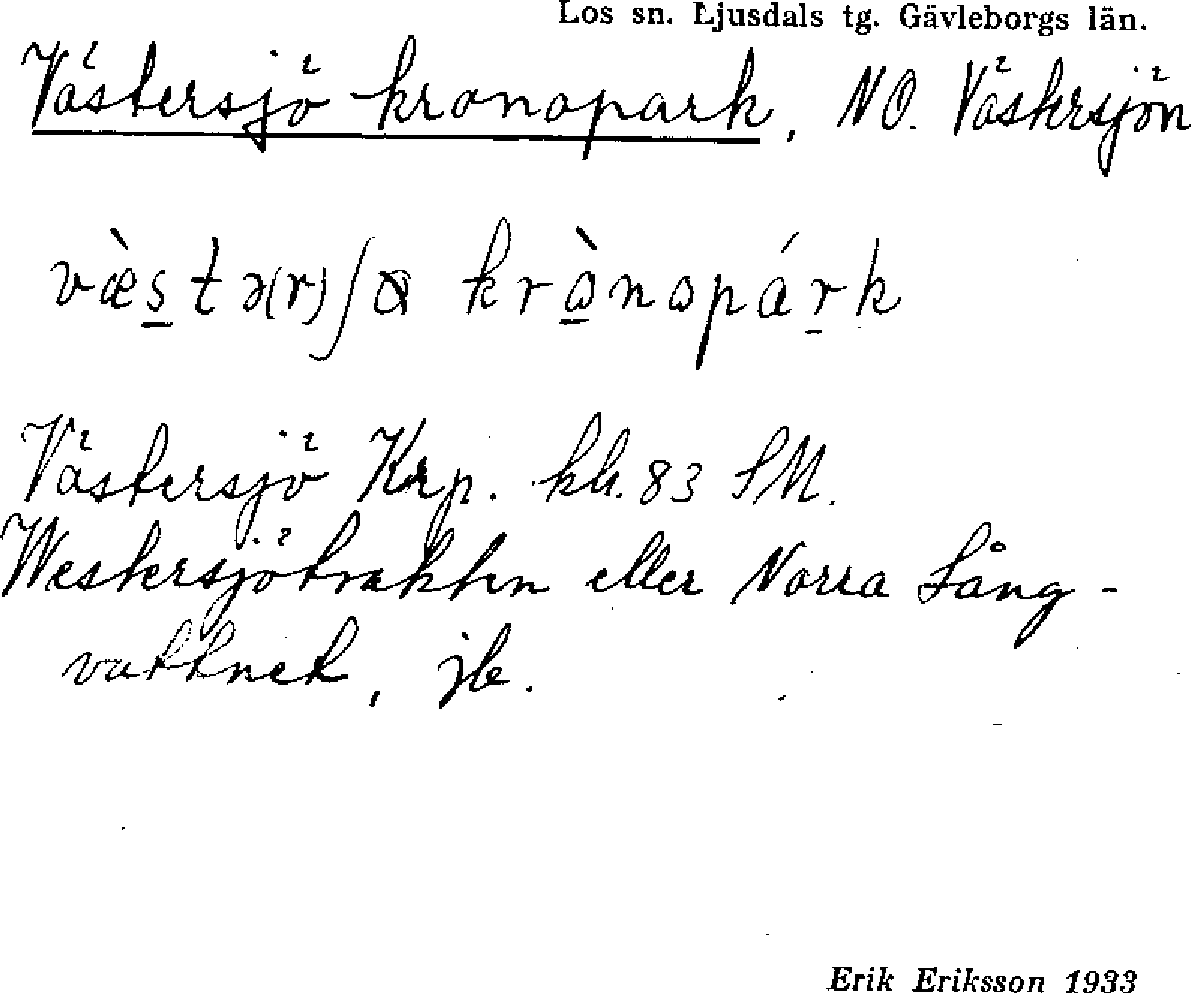 Los sn. Ljusdals tg. Gävleborgs län.
Västersjö kronopark, NO. Västersjön
væ̀s̲tə(r)ʃɷ krɷ̲̀nɷpár̲k
Västersjö Krp. kbl. 83 SM.
Westersjötrakten eller Norra Lång-
vattnet, jb.
Erik Eriksson 1933